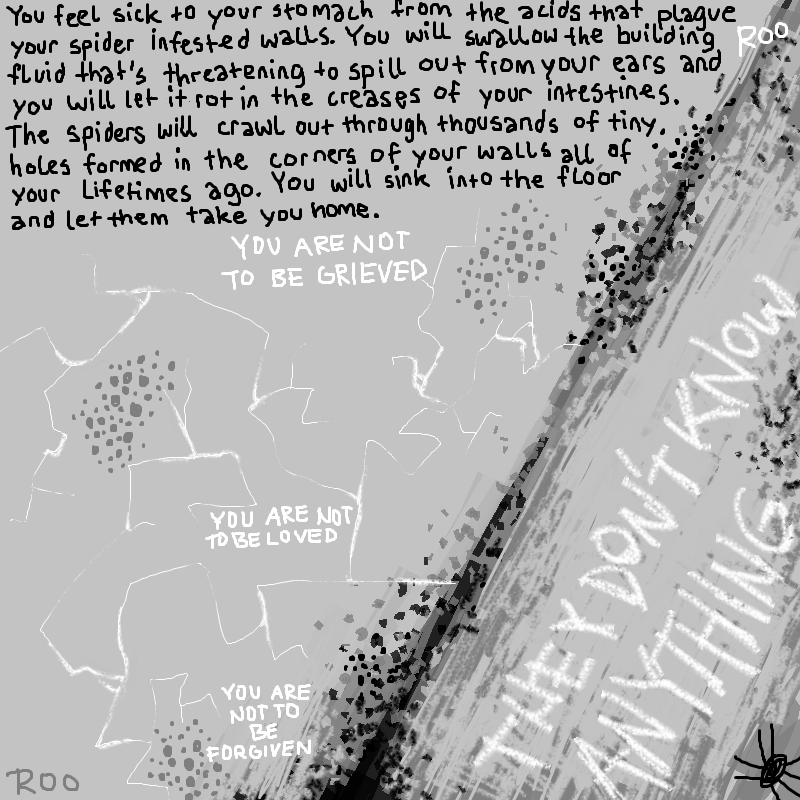 You feel sick to your stomach from the acids that plague
your spider infested walls. You will swallow the building
fluid that's threatening to spill out from your ears and
you will let it rot in the creases of your intestines.
The spiders will crawl out through thousands of tiny
holes formed in the corners of your walls all of
your Lifetimes ago. You will sink into the floor
and let them take you home.
ROO
YOU ARE NOT
TO BE GRIEVED
YOU ARE NOT
TO BE LOVED
YOU ARE
NOT TO
BE
FORGIVEN
THEY DON'T KNOW
ANYTHING
ROO